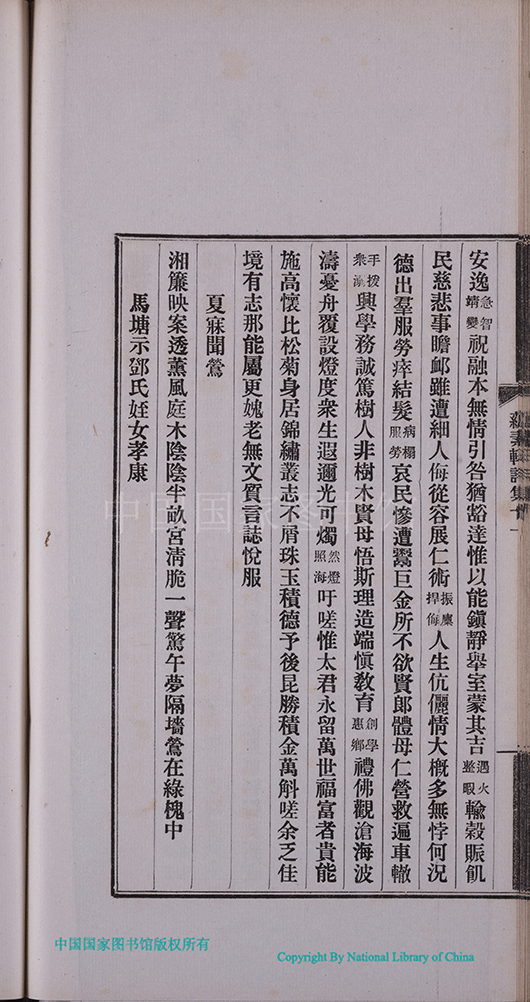 安逸急智靖變祝融本無情引咎猶豁達惟以能鎭靜舉室蒙其吉遇火整暇輸穀賑飢
民慈悲事瞻邺雖遭細人侮從容展仁術振廩捍侮人生伉儷情大概多無悖何況
德出羣服勞瘁結髮病榻服勞哀民慘遭鬻巨金所不欲賢郞體母仁營救遍車轍
手援衆溺興學務誠篤樹人非樹木賢母悟斯理造端愼敎育創學惠鄉禮佛觀滄海波
濤憂舟覆設燈度衆生遐邇光可燭然燈照海吁嗟惟太君永留萬世福富者貴能
施高懷比松菊身居錦繡叢志不屑珠玉積德予後昆勝積金萬斛嗟余乏佳
境有志那能屬更媿老無文質言誌悅服
夏寐聞鶯
湘簾映案透薰風庭木陰陰半畝宮淸脆一聲驚午夢隔墻鶯在綠槐中
馬塘示鄧氏姪女孝康
中国国家图书馆版权所有
Copyright By National Library of China